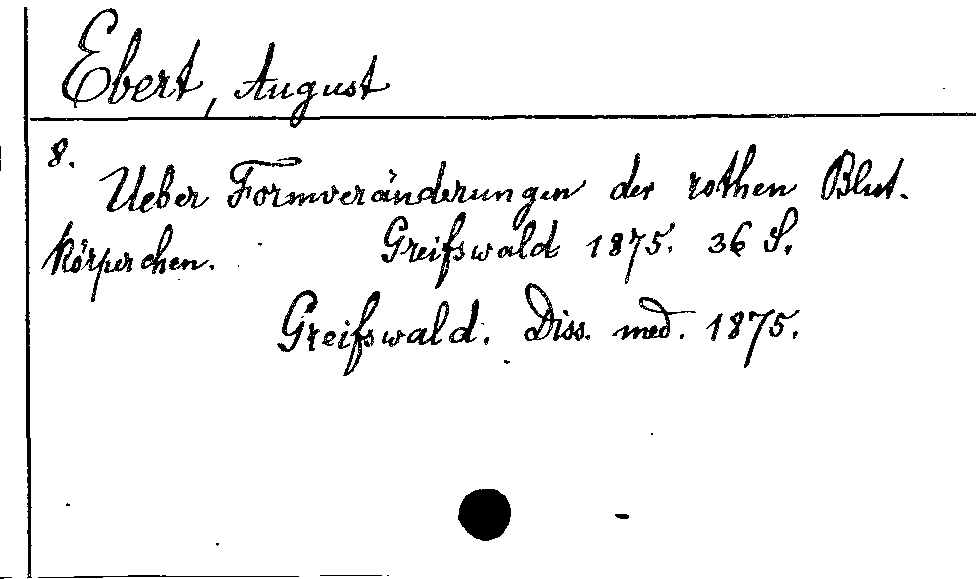 Ebert, August
8.
Ueber Formveränderungen der rothen Blut-
körperchen. Greifswald 1875. 36 S.
Greifswald. Diss. med. 1875.